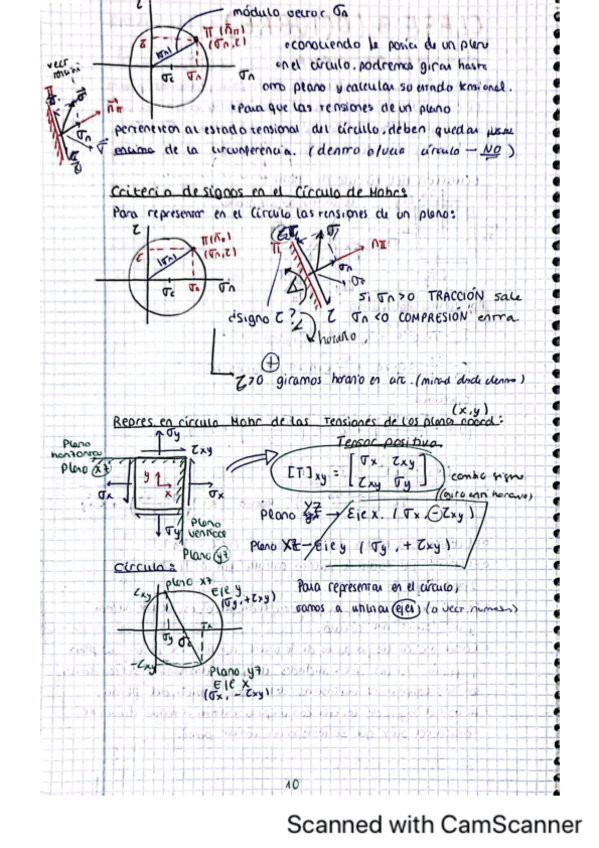 τ
módulo vector σn
π (n̄π)
(σn, τ)
|σn|
σc σn σn
vector
n̄π
σn
• conociendo la posic de un plano
en el círculo, podremos girar hasta
otro plano y calcular su estado tensional.
• Para que las tensiones de un plano
pertenezcan al estado tensional del círculo, deben quedar
encima de la circunferencia. (dentro o fuera círculo — NO)
Criterio de signos en el Círculo de Mohr:
Para representar en el Círculo las tensiones de un plano:
τ
π (n̄π)
(σn, τ)
|σn|
σc σn σn
π
nπ
σn
τ
¿signo τ?
horario
Si σn>0 TRACCIÓN sale
σn<0 COMPRESIÓN entra.
⊕
τ>0 giramos horario en circ. (mirad desde dentro)
Repres. en círculo Mohr de las tensiones de los planos coord:
(x,y)
Plano
horizontal
Plano xz
σy
τxy
y
x
σx
σx
σy
Plano
vertical
Plano yz
Tensor positivo
[T]xy = [σx τxy
τxy σy]
cambio signo
(giro anti horario)
Plano yz → Eje x. (σx, -τxy)
Plano xz → Eje y (σy, +τxy)
Círculo:
plano xz
Eje y
(σy, +τxy)
τxy
σy σc σx
-τxy
Plano yz
Eje x
(σx, -τxy)
Para representar en el círculo,
vamos a utilizar ejes (o vect normales)
10
Scanned with CamScanner